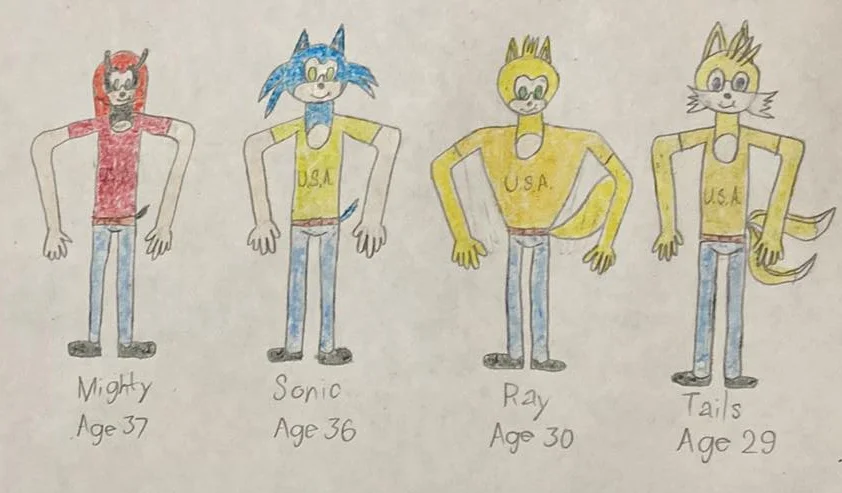 U.S.A.
U.S.A.
U.S.A.
Mighty
Age 37
Sonic
Age 36
Ray
Age 30
Tails
Age 29